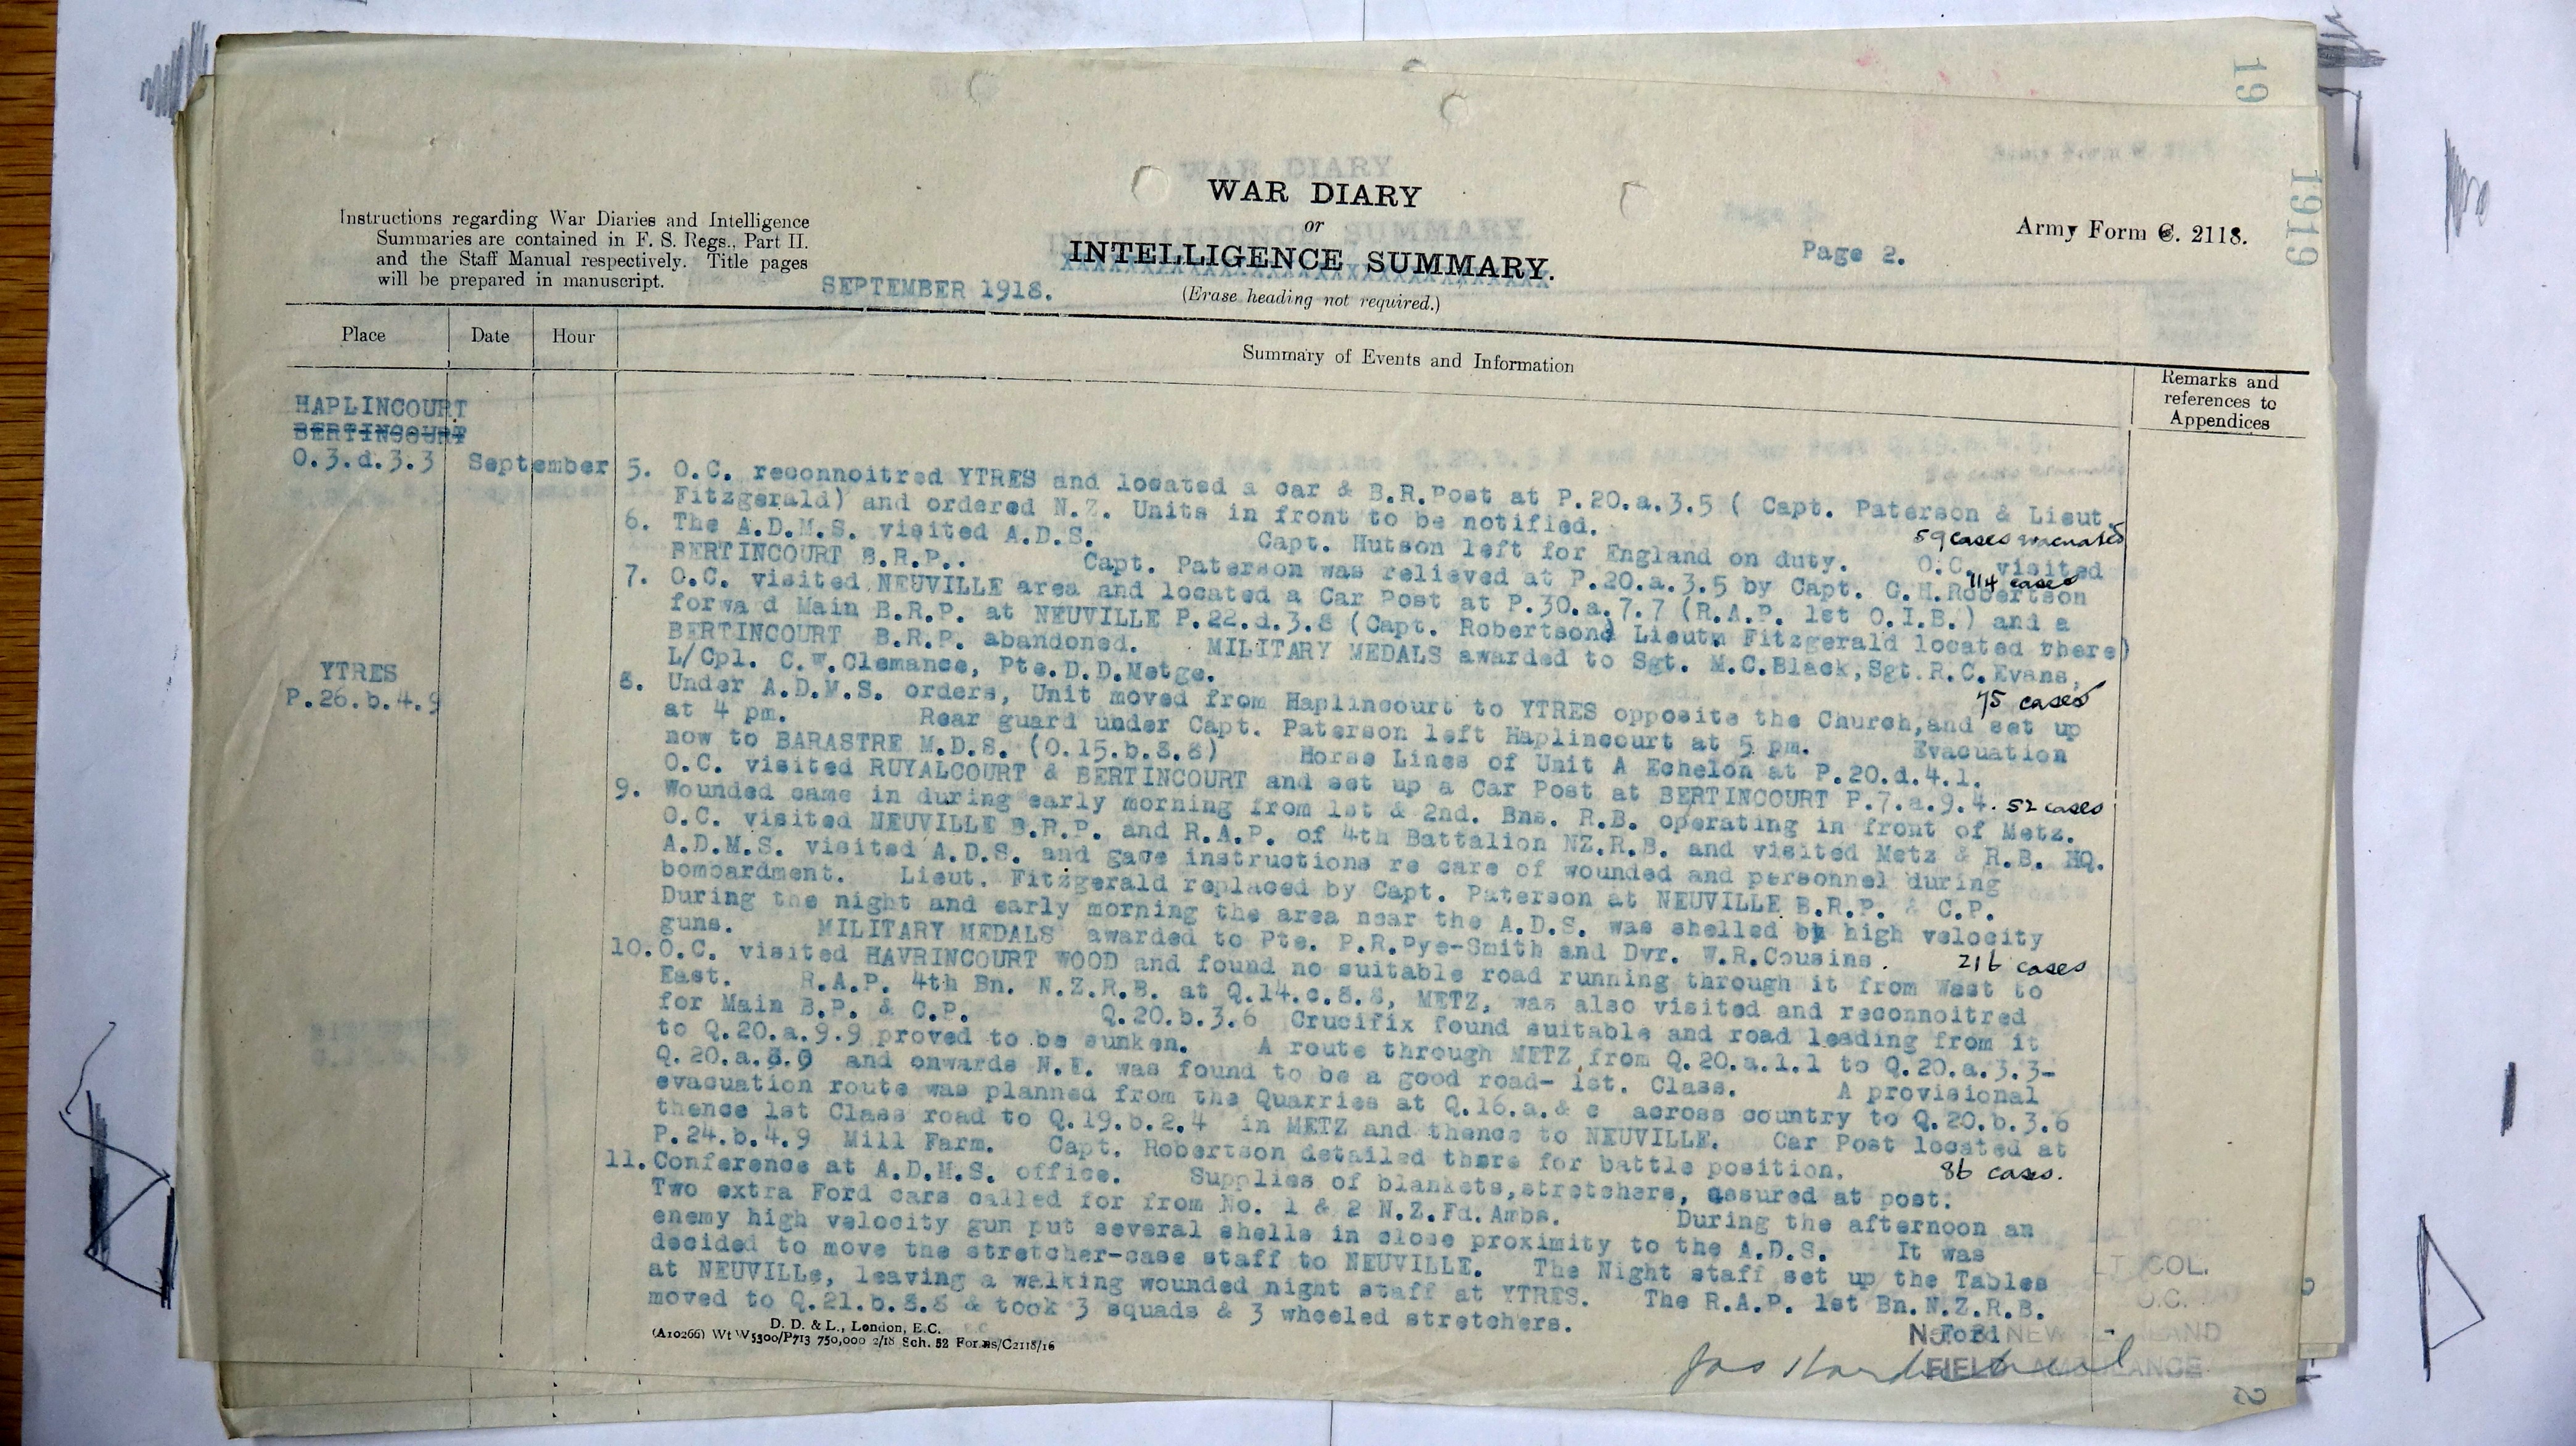 19
1919
WAR DIARY
or
INTELLIGENCE SUMMARY.
(Erase heading not required.)
Instructions regarding War Diaries and Intelligence
Summaries are contained in F. S. Regs., Part II.
and the Staff Manual respectively. Title pages
will be prepared in manuscript.
SEPTEMBER 1918.
Page 2.
Army Form C. 2118.
Place
Date
Hour
Summary of Events and Information
Remarks and
references to
Appendices
HAPLINCOURT
BERTINCOURT
O.3.d.3.3 September
5. O.C. reconnoitred YTRES and located a car & B.R.Post at P.20.a.3.5 ( Capt. Paterson & Lieut.
Fitzgerald) and ordered N.Z. Units in front to be notified.
59 cases evacuated
6. The A.D.M.S. visited A.D.S. Capt. Hutson left for England on duty. O.C. visited
BERTINCOURT B.R.P.. Capt. Paterson was relieved at P.20.a.3.5 by Capt. G.H.Robertson
114 cases
7. O.C. visited NEUVILLE area and located a Car Post at P.30.a.7.7 (R.A.P. 1st O.I.B.) and a
forwa d Main B.R.P. at NEUVILLE P.22.d.3.8 (Capt. Robertson& Lieutm Fitzgerald located there)
BERTINCOURT B.R.P. abandoned. MILITARY MEDALS awarded to Sgt. M.C.Black,Sgt.R.C.Evans,
L/Cpl. C.W.Clemance, Pte.D.D.Metge.
75 cases
YTRES
P.26.b.4.9
8. Under A.D.M.S. orders, Unit moved from Haplincourt to YTRES opposite the Church,and set up
at 4 pm. Rear guard under Capt. Paterson left Haplincourt at 5 pm. Evacuation
now to BARASTRE M.D.S. (O.15.b.8.8) Horse Lines of Unit A Echelon at P.20.d.4.1.
O.C. visited RUYALCOURT & BERTINCOURT and set up a Car Post at BERTINCOURT P.7.a.9.4. 52 cases
9. Wounded came in during early morning from 1st & 2nd. Bns. R.B. operating in front of Metz.
O.C. visited NEUVILLE B.R.P. and R.A.P. of 4th Battalion NZ.R.B. and visited Metz & R.B. HQ.
A.D.M.S. visited A.D.S. and gave instructions re care of wounded and personnel during
bombardment. Lieut. Fitzgerald replaced by Capt. Paterson at NEUVILLE B.R.P. & C.P.
During the night and early morning the area near the A.D.S. was shelled by high velocity
guns. MILITARY MEDALS awarded to Pte. P.R.Pye-Smith and Dvr. W.R.Cousins. 216 cases
10. O.C. visited HAVRINCOURT WOOD and found no suitable road running through it from West to
East. R.A.P. 4th Bn. N.Z.R.B. at Q.14.c.8.8, METZ, was also visited and reconnoitred
for Main B.P. & C.P. Q.20.b.3.6 Crucifix found suitable and road leading from it
to Q.20.a.9.9 proved to be sunken. A route through METZ from Q.20.a.1.1 to Q.20.a.3.3-
Q.20.a.8.9 and onwards N.E. was found to be a good road- 1st. Class. A provisional
evacuation route was planned from the Quarries at Q.16.a.& c across country to Q.20.b.3.6
thence 1st Class road to Q.19.b.2.4 in METZ and thence to NEUVILLE. Car Post located at
P.24.b.4.9 Mill Farm. Capt. Robertson detailed there for battle position. 86 cases.
11. Conference at A.D.M.S. office. Supplies of blankets,stretchers, assured at post.
Two extra Ford cars called for from No. 1 & 2 N.Z.Fd.Ambs. During the afternoon an
enemy high velocity gun put several shells in close proximity to the A.D.S. It was
decided to move the stretcher-case staff to NEUVILLE. The Night staff set up the Tables
at NEUVILLe, leaving a walking wounded night staff at YTRES. The R.A.P. 1st Bn.N.Z.R.B.
moved to Q.21.b.8.8 & took 3 squads & 3 wheeled stretchers.
D. D. & L., London, E.C.
(A10266) Wt W5300/P713 750,000 2/18 Sch. 52 Forms/C2118/16
LT COL.
O.C.
FIELD AMBULANCE
2